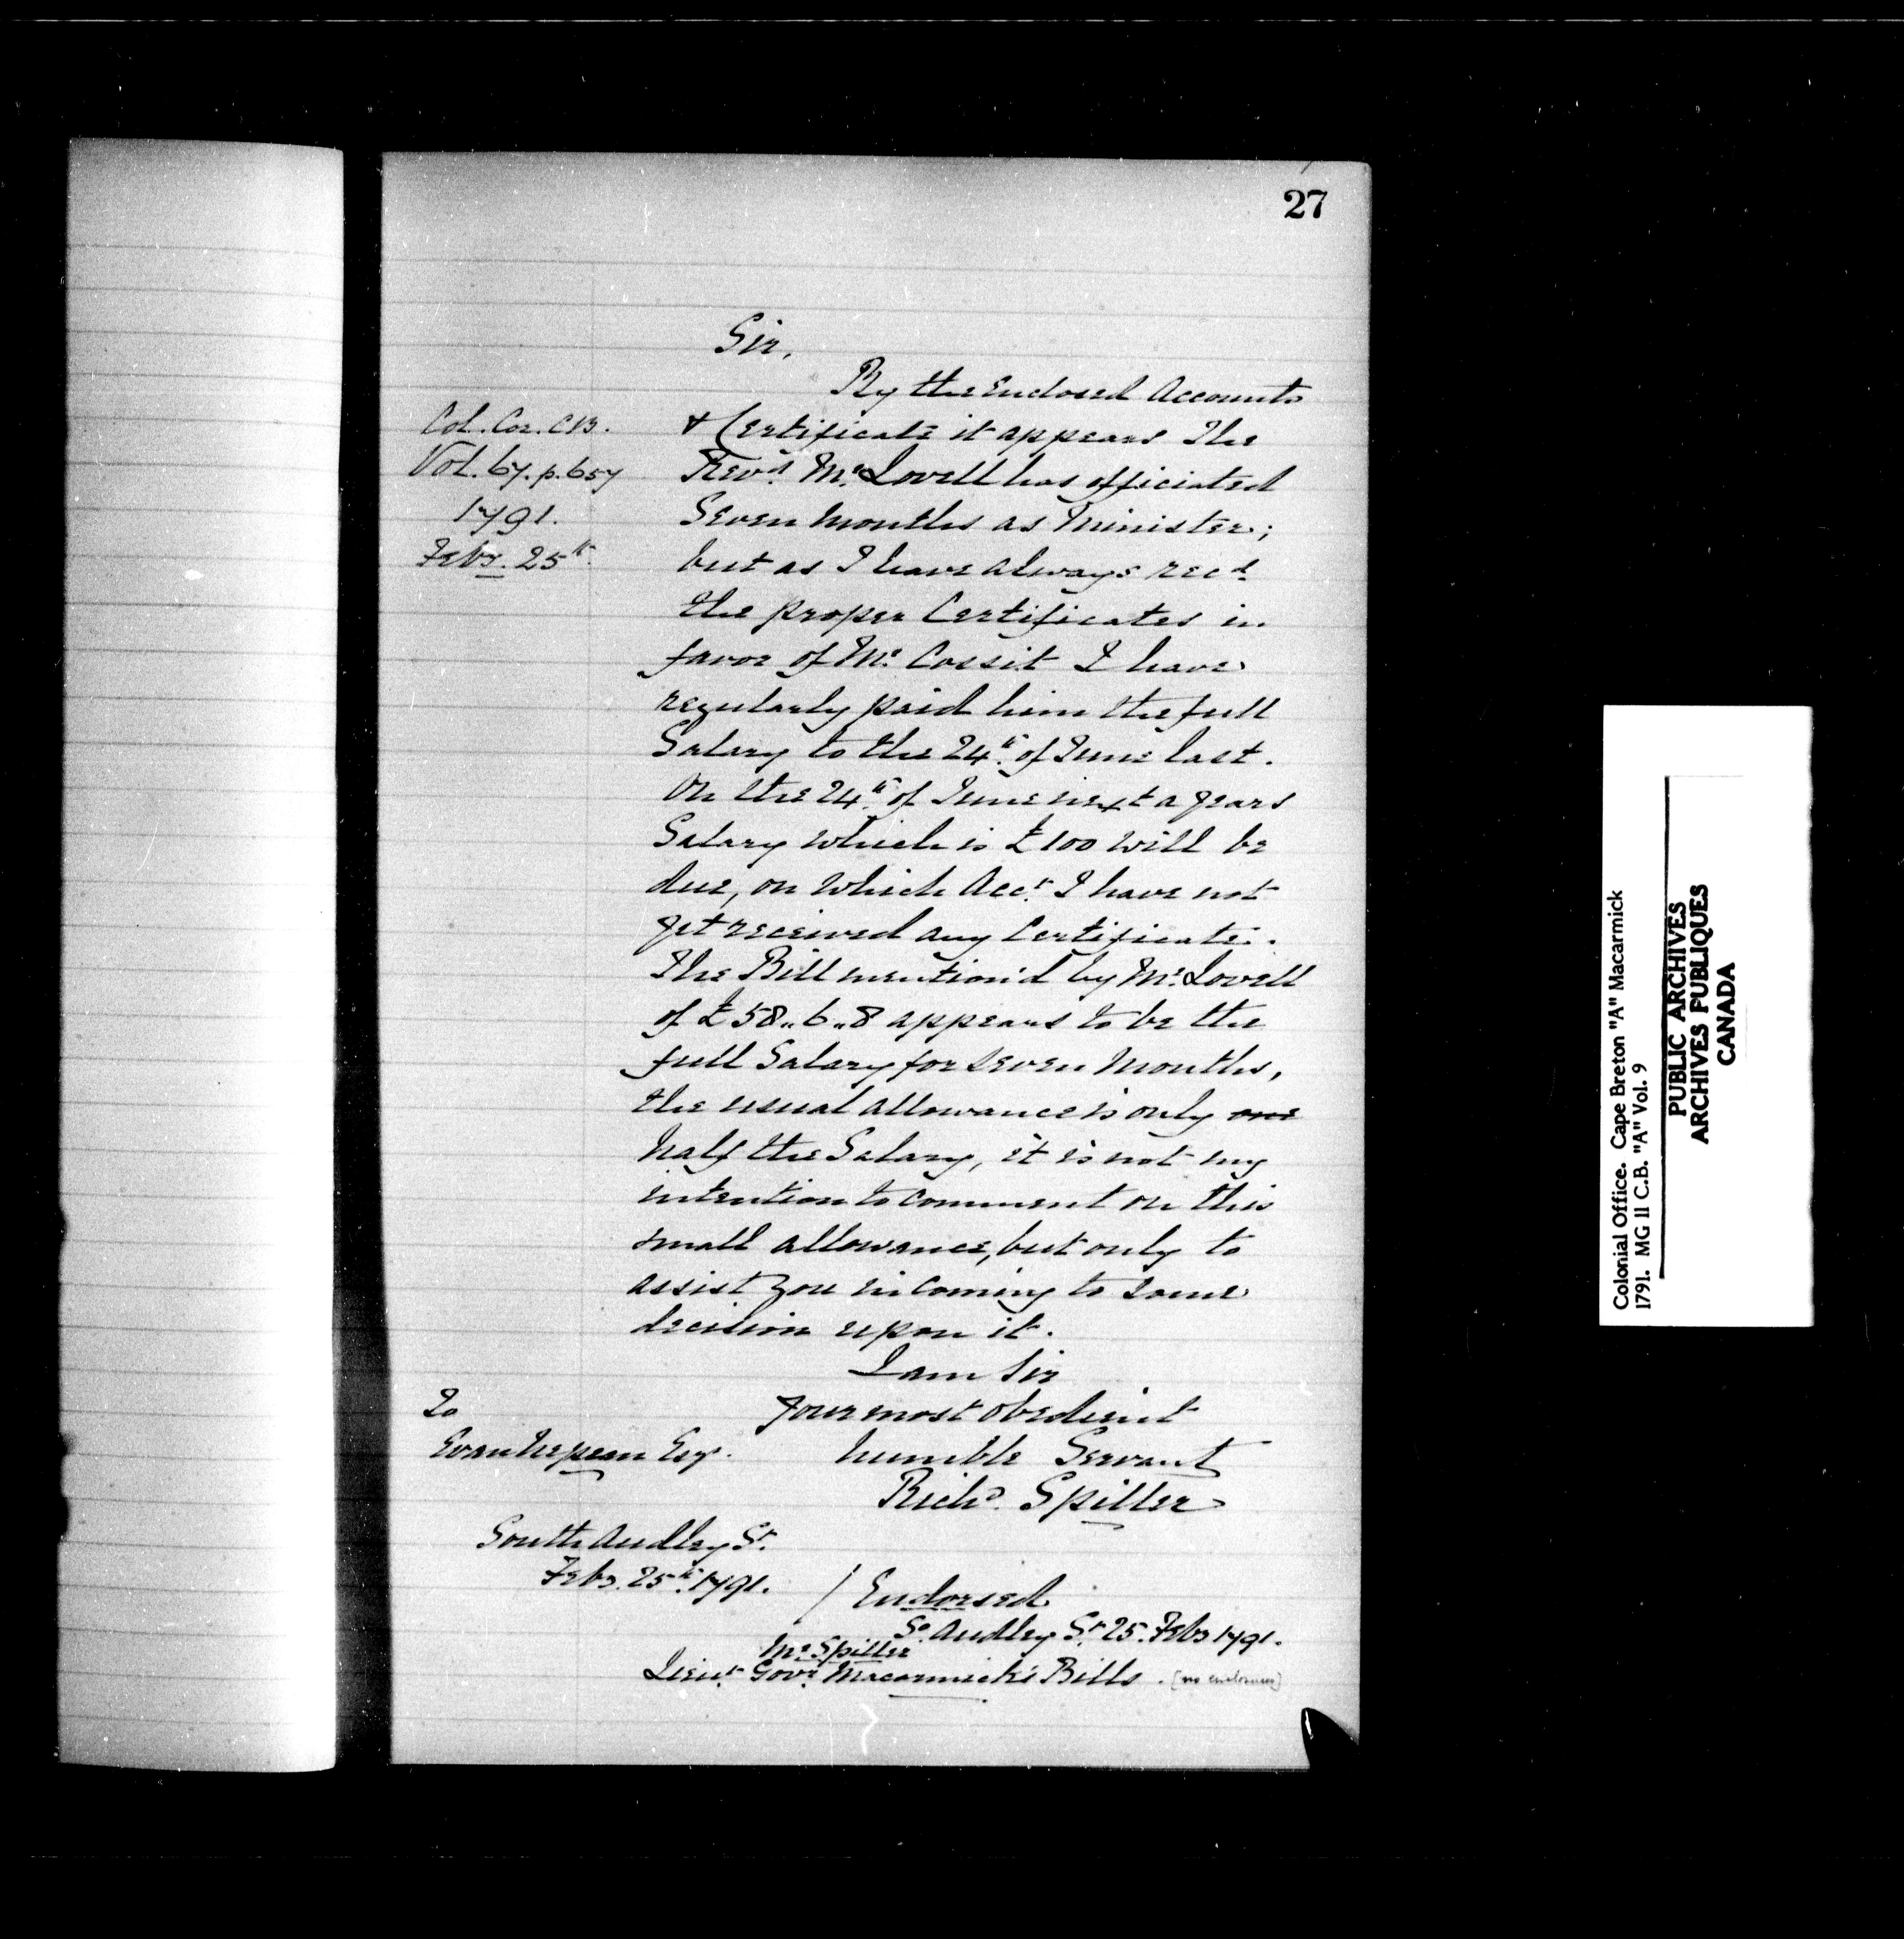 27
Sir,
By the Enclosed Accounts
Col. Cor. C.B.
Vol. 67. p. 657
1791.
Feby. 25th.
& Certificate it appears The
Revd. Mr. Lovell has officiated
Seven Months as Minister;
but as I have always recd.
the proper Certificates in
favor of Mr. Cossit I have
regularly paid him the full
Salary to the 24th. of June last.
On the 24th. of June next a years
Salary which is £100 will be
due, on which Acct. I have not
yet received any Certificate.
The Bill mention'd by Mr. Lovell
of £58..6..8 appears to be the
full Salary for Seven Months,
the usual allowance is only one
half the Salary, it is not my
intention to comment on this
small allowance, but only to
assist you in coming to some
decision upon it.
I am Sir
Your most obedient
humble Servant
Richd. Spiller
To
Evan Nepean Esqr.
South Audley St.
Feby. 25th. 1791.
/ Endorsed
So. Audley St. 25. Feby 1791.
Mr. Spiller
Lieut. Govr. Macarmick's Bills. [no enclosures]
Colonial Office. Cape Breton "A" Macarmick
1791. MG 11 C.B. "A" Vol. 9
PUBLIC ARCHIVES
ARCHIVES PUBLIQUES
CANADA